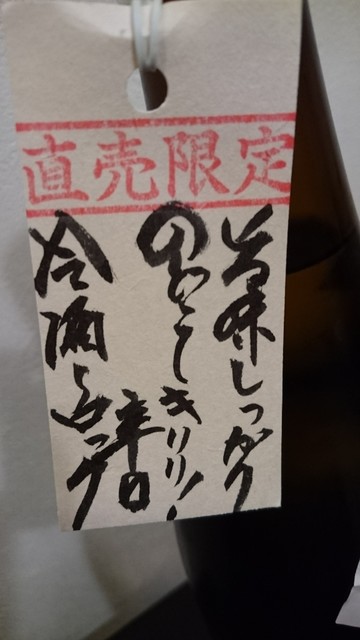 直売限定
旨味しっかり
のどごしキリリ!
辛口
冷酒
ロック